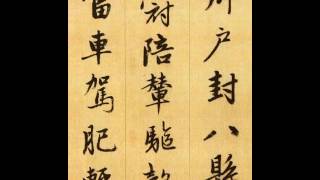 户封八縣
冠陪輦驅
富車駕肥輕